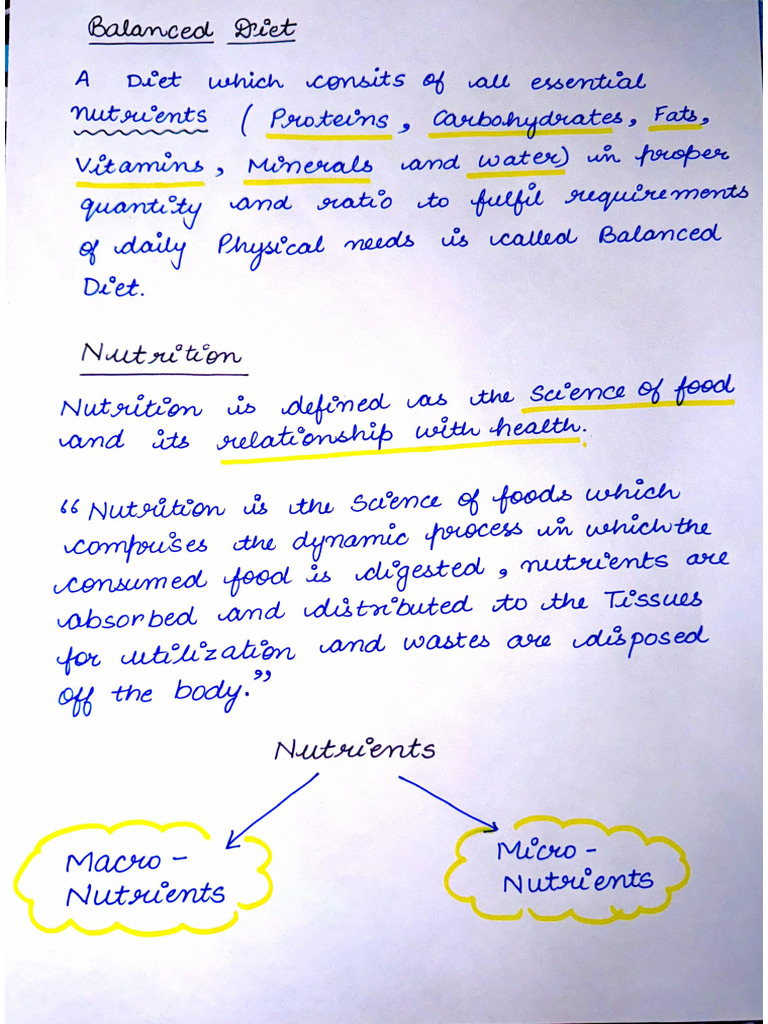 Balanced Diet
A Diet which consits of all essential
nutrients ( Proteins, Carbohydrates, Fats,
Vitamins, Minerals and water) in proper
quantity and ratio to fulfil requirements
of daily Physical needs is called Balanced
Diet.
Nutrition
Nutrition is defined as the Science of food
and its relationship with health.
“Nutrition is the Science of foods which
comprises the dynamic process in which the
consumed food is digested, nutrients are
absorbed and distributed to the Tissues
for utilization and wastes are disposed
off the body.”
Nutrients
Macro -
Nutrients
Micro -
Nutrients